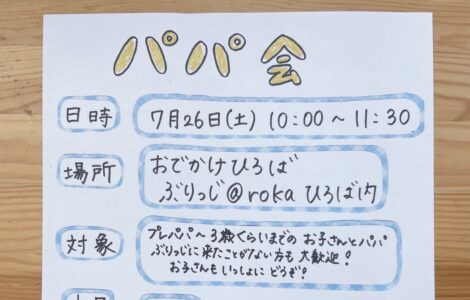 パパ会
日時
7月26日(土) 10:00～11:30
場所
おでかけひろば
ぶりっじ@roka ひろば内
対象
プレパパ～3歳くらいまでの お子さんとパパ
ぶりっじに来たことがない方も大歓迎！
お子さんもいっしょに どうぞ！